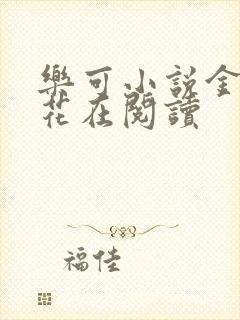 樂可小説全
花在閱讀
福佳